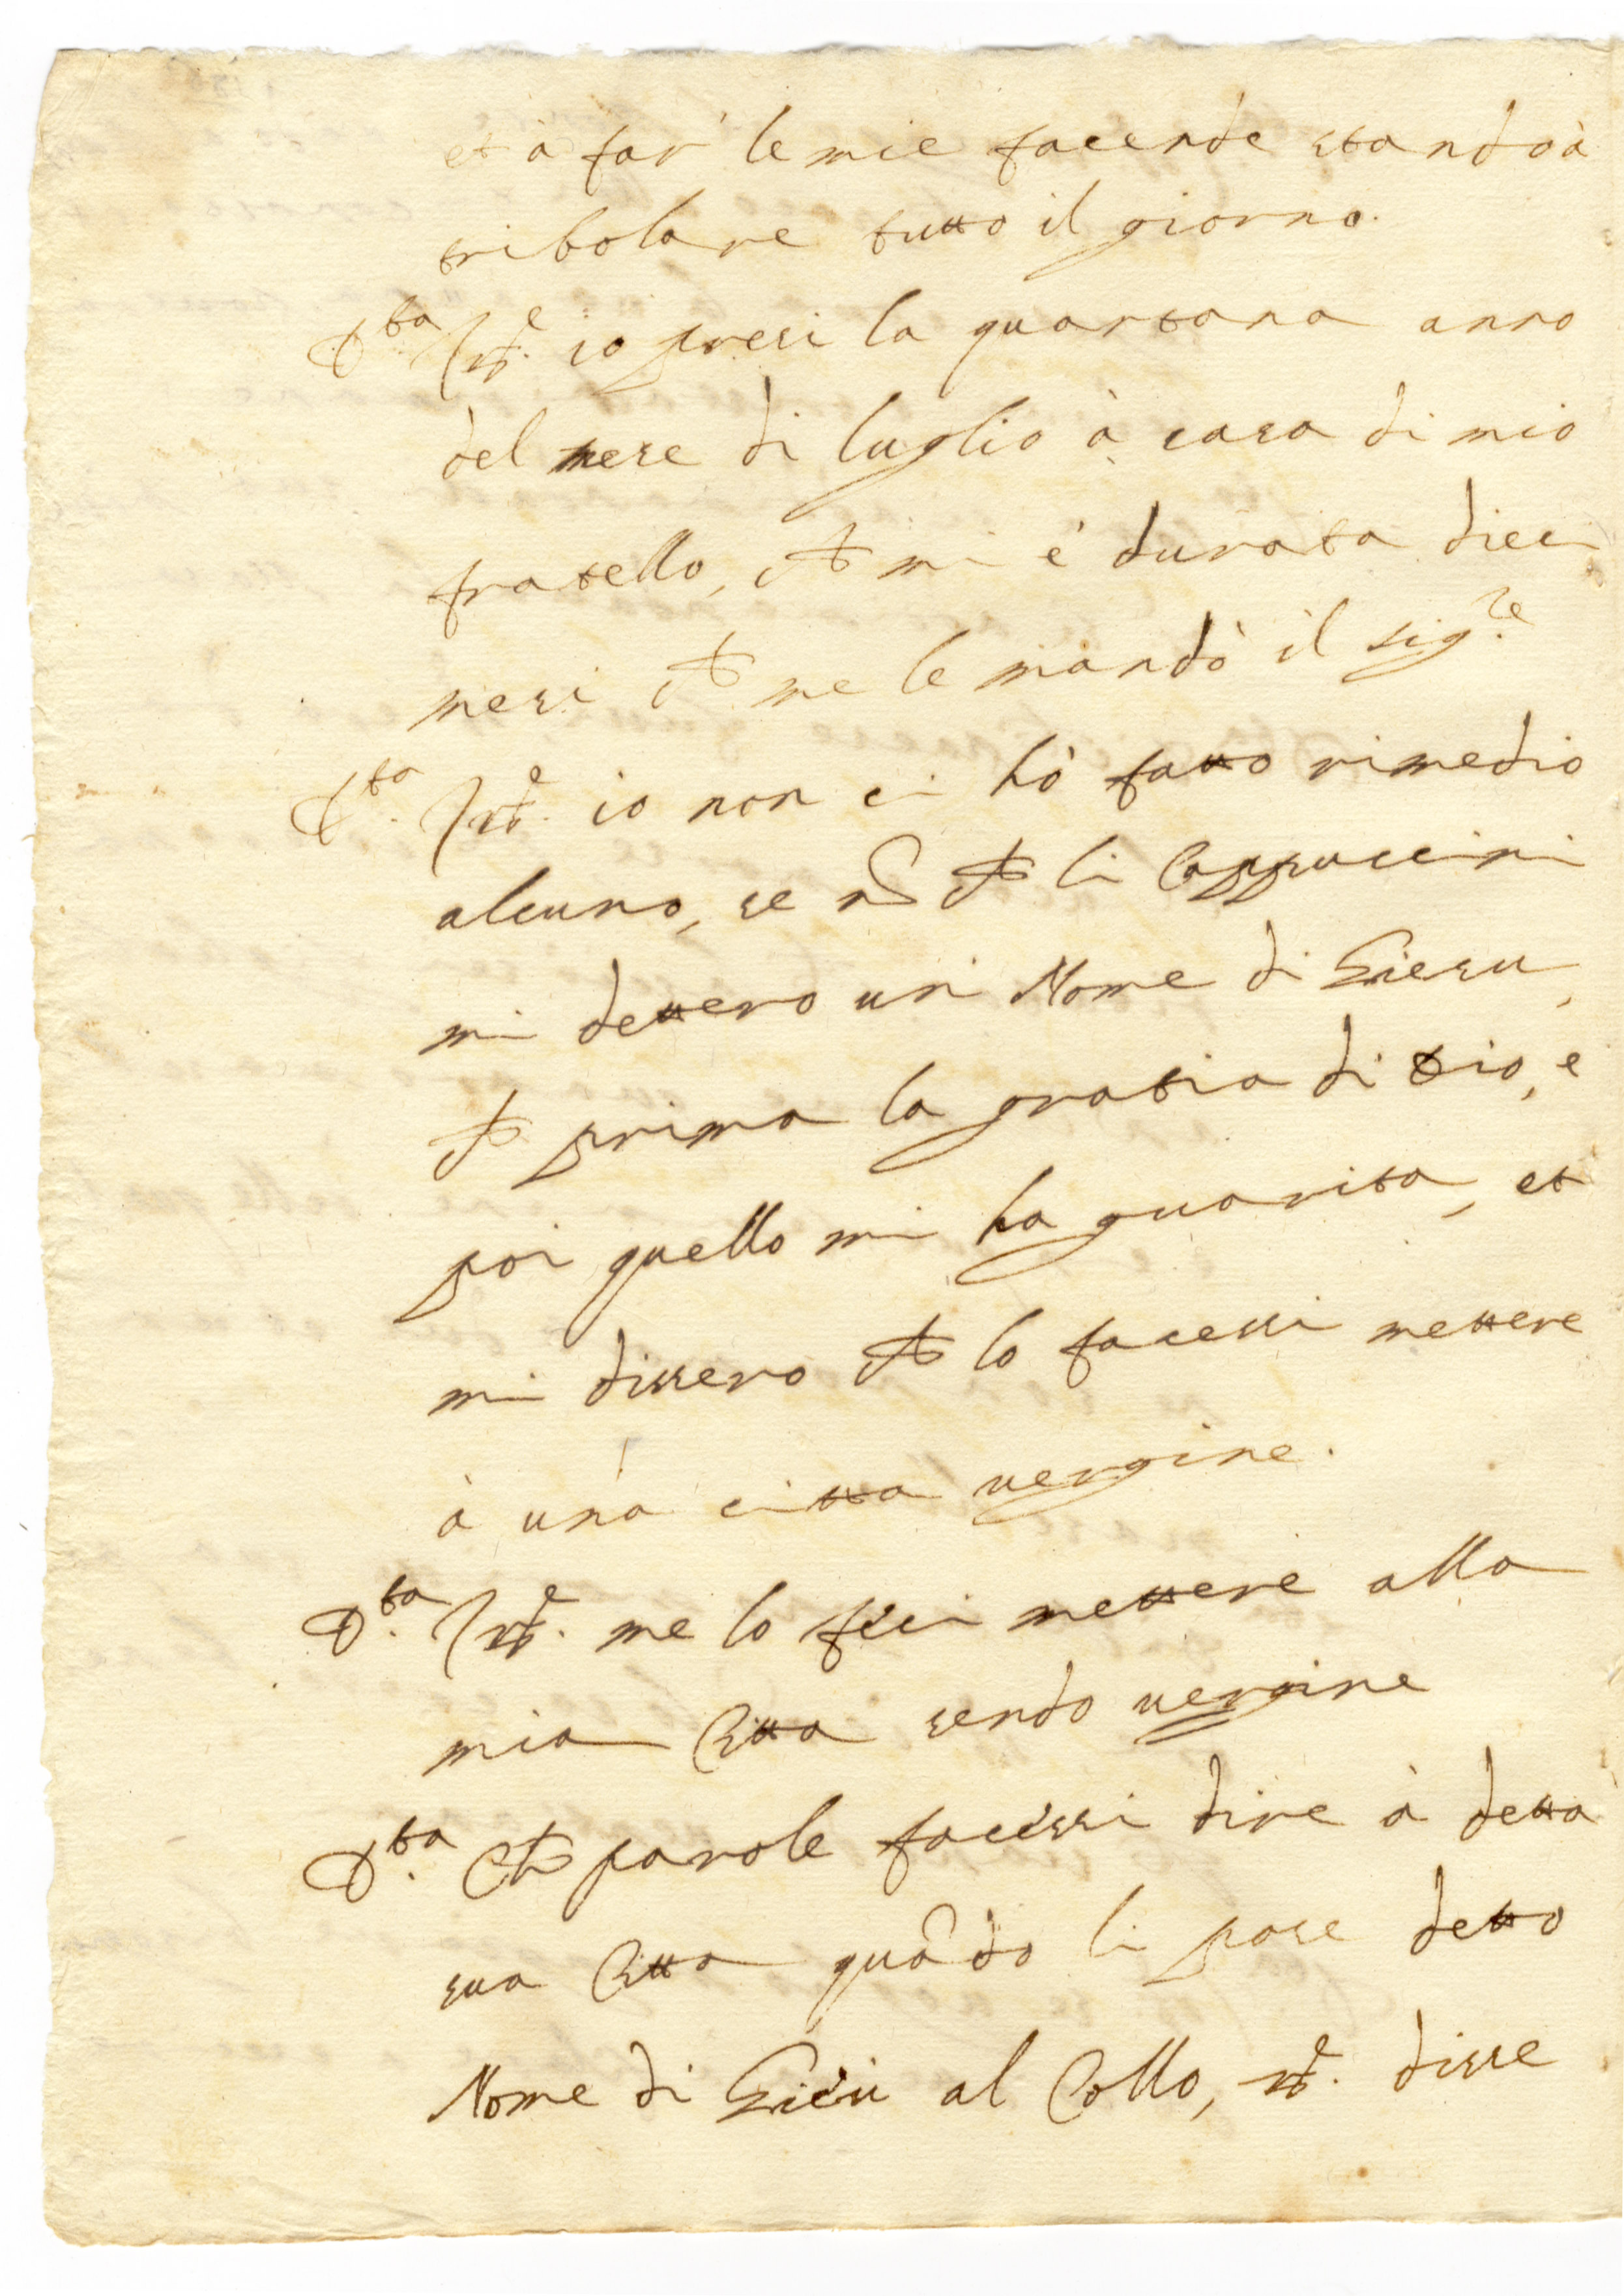 et à far le mie facende stando à
tribolare tutto il giorno.
D.ta R.e io presi la quartana anno
del mese di luglio à casa di mio
fratello, ch mi è durata dieci
mesi ch me le mandò il sig.re
D.ta R.e io non ci hò fatto rimedio
alcuno, se nō ch li Cappuccini
mi dettero un Nome di Giesu,
ch prima la gratia di Dio, e
poi quello mi ha guarita, et
mi dissero ch lo facessi mettere
à una citta vergine.
D.ta R.e me lo feci mettere alla
mia Citta sendo vergine
D.ta Ch parole facessi dire à detta
sua Citta quādo li pose detto
Nome di Giesù al Collo, R.e disse